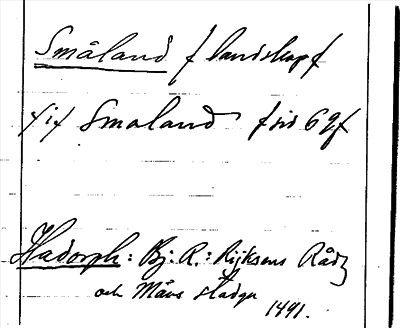 Småland / landskap /
/ i / Smaland / sid 69 /
Hadorph: Bj. R.: Rijksens Rådz
och Mäns stadga
1491.